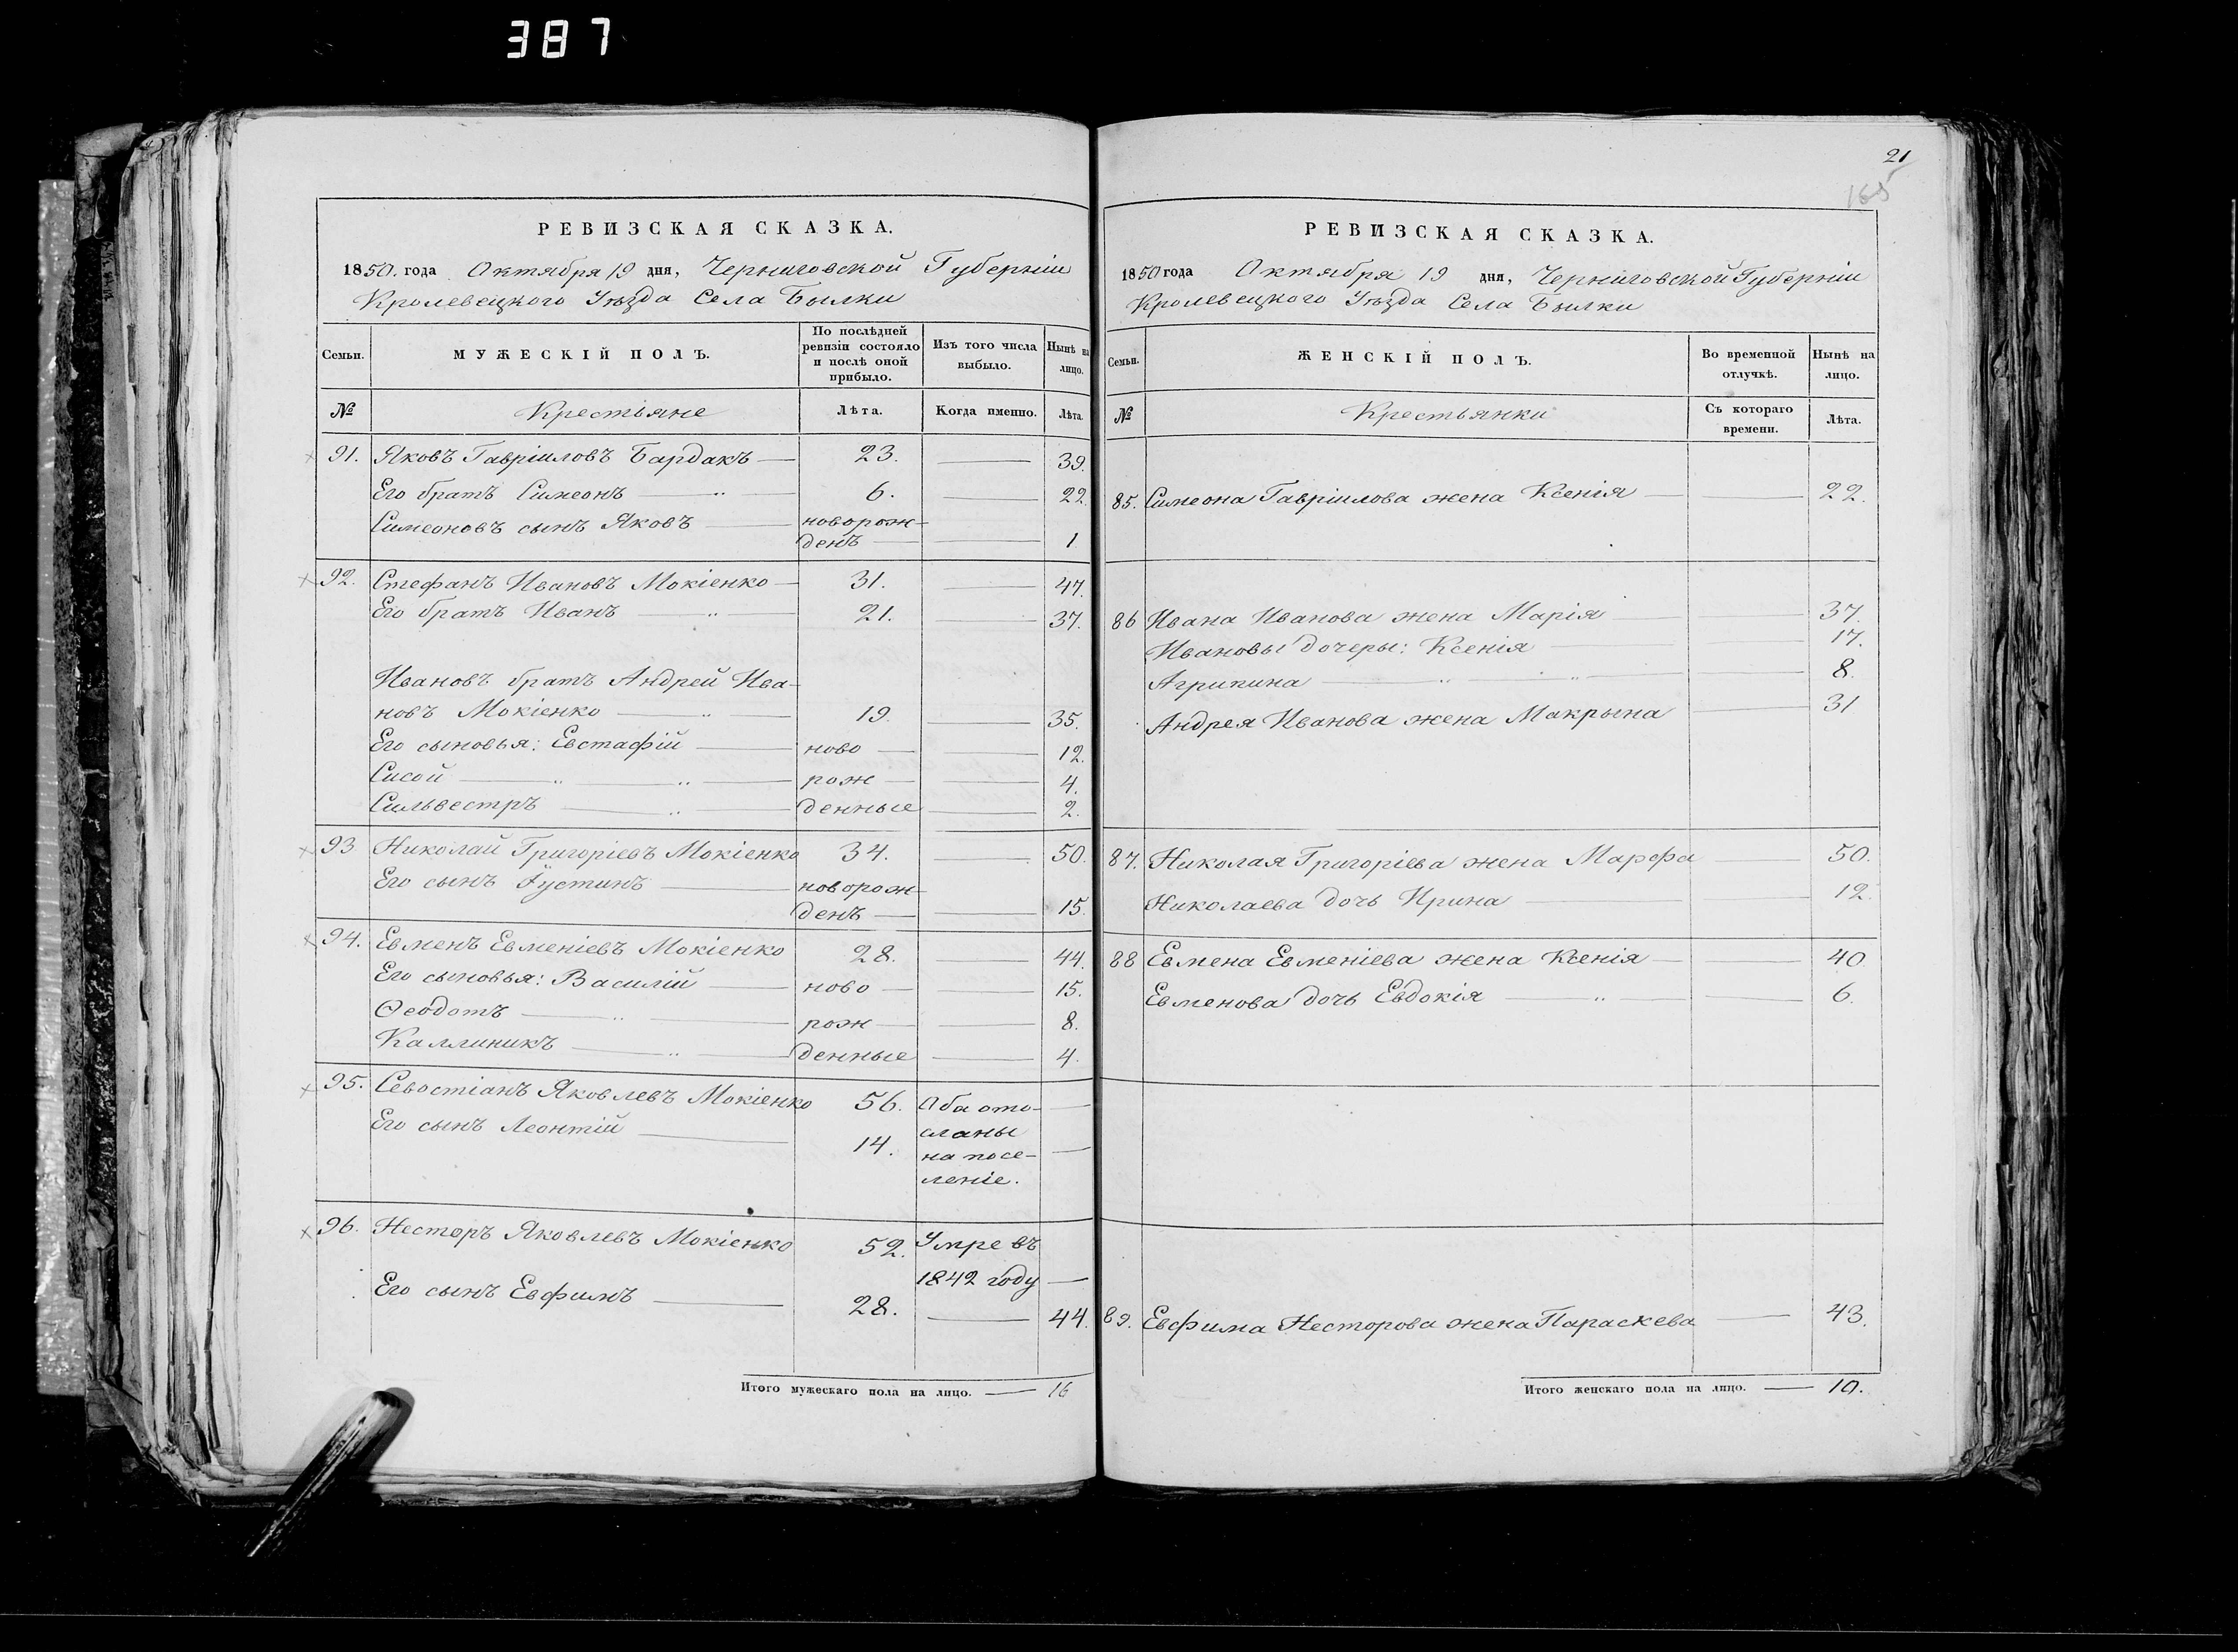 387
РЕВИЗСКАЯ СКАЗКА.
1850. года Октября 19 дня, Черниговской Губерніи
Кролевецкого Уѣзда Села Былки
Семьи. МУЖЕСКІЙ ПОЛЪ. По послѣдней ревизіи состояло и послѣ оной прибыло. Изъ того числа выбыло. Нынѣ на лицо.
№ Крестьяне Лѣта. Когда именно. Лѣта.
91. Яковъ Гавріиловъ Бардакъ — 23. — 39.
Его братъ Симеонъ — 6. — 22.
Симеоновъ сынъ Яковъ — новорож-
денъ — 1
92. Стефанъ Ивановъ Мокіенко — 31. — 47.
Его братъ Иванъ — 21. — 37.
Ивановъ братъ Андрей Ива-
новъ Мокіенко — 19. — 35.
Его сыновья: Евстафій — ново — 12.
Сисой — рож — 4.
Сильвестръ — денные — 2.
93 Николай Григоріевъ Мокіенко 34. — 50.
Его сынъ Іустинъ — новорож-
денъ — 15.
94. Евменъ Евменіевъ Мокіенко 28. — 44.
Его сыновья: Василій — ново — 15.
Ѳеодотъ — рож — 8.
Каллиникъ — денные — 4.
95. Севостіанъ Яковлевъ Мокіенко 56. Оба ото- —
Его сынъ Леонтій — 14. сланы
на посе- —
леніе.
96. Несторъ Яковлевъ Мокіенко 52. Умре въ
1842 году —
Его сынъ Евфимъ — 28. — 44.
Итого мужескаго пола на лицо. — 16
21
165
РЕВИЗСКАЯ СКАЗКА.
1850 года Октября 19 дня, Черниговской Губерніи
Кролевецкого Уѣзда Села Былки
Семьи. ЖЕНСКІЙ ПОЛЪ. Во временной отлучкѣ. Нынѣ на лицо.
№ Крестьянки Съ котораго времени. Лѣта.
85. Симеона Гавріилова жена Ксенія — 22.
86 Ивана Иванова жена Марія — 37.
Ивановы дочеры: Ксенія — 17.
Агрипина — 8.
Андрея Иванова жена Макрына — 31
87. Николая Григоріева жена Марфа — 50.
Николаева дочь Ирина — 12.
88 Евмена Евменіева жена Ксенія — 40
Евменова дочь Евдокія — 6.
89. Евфима Несторова жена Параскева — 43.
Итого женскаго пола на лицо. — 10.